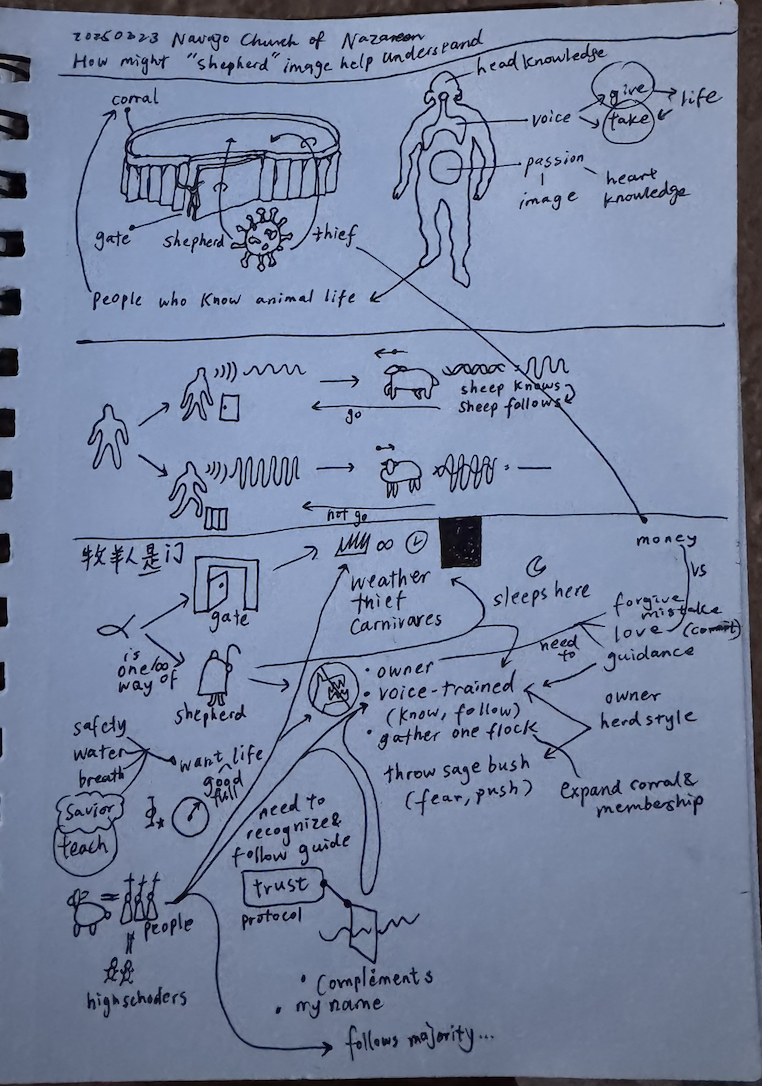 20250223 Navajo Church of Nazareen
How might "shepherd" image help understand
head knowledge
corral
give
take
life
voice
passion
image
heart
knowledge
gate
shepherd
thief
people who know animal life
sheep knows
sheep follows
go
not go
牧羊人是门
money
vs
weather
thief
Carnivares
sleeps here
gate
forgive
mistake
love
guidance
need
to
is
one/∞
way of
shepherd
• owner
• voice-trained
(know, follow)
• gather one flock
owner
herd style
throw sage bush
(fear, push)
expand corral &
membership
safety
water
breath
want life
good
full
savior
teach
need to
recognize &
follow guide
trust
protocol
people
highschoolers
• Complements
• my name
follows majority...